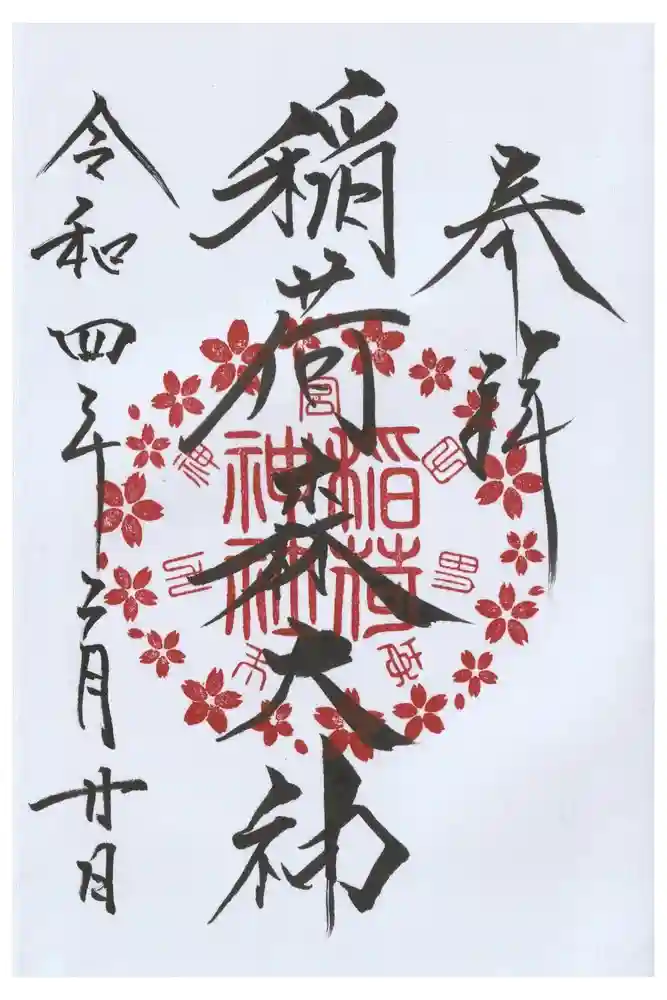 奉拝
稲荷森大神
令和四年二月廿日
稲荷
神